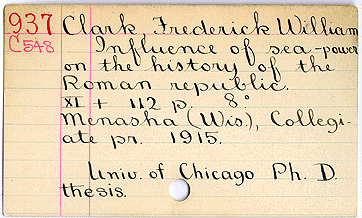 937 Clark, Frederick William
C548 Influence of sea-power
on the history of the
Roman republic.
XI + 112 p. 8°
Menasha (Wis), Collegi-
ate pr. 1915.
Univ. of Chicago Ph. D.
thesis.